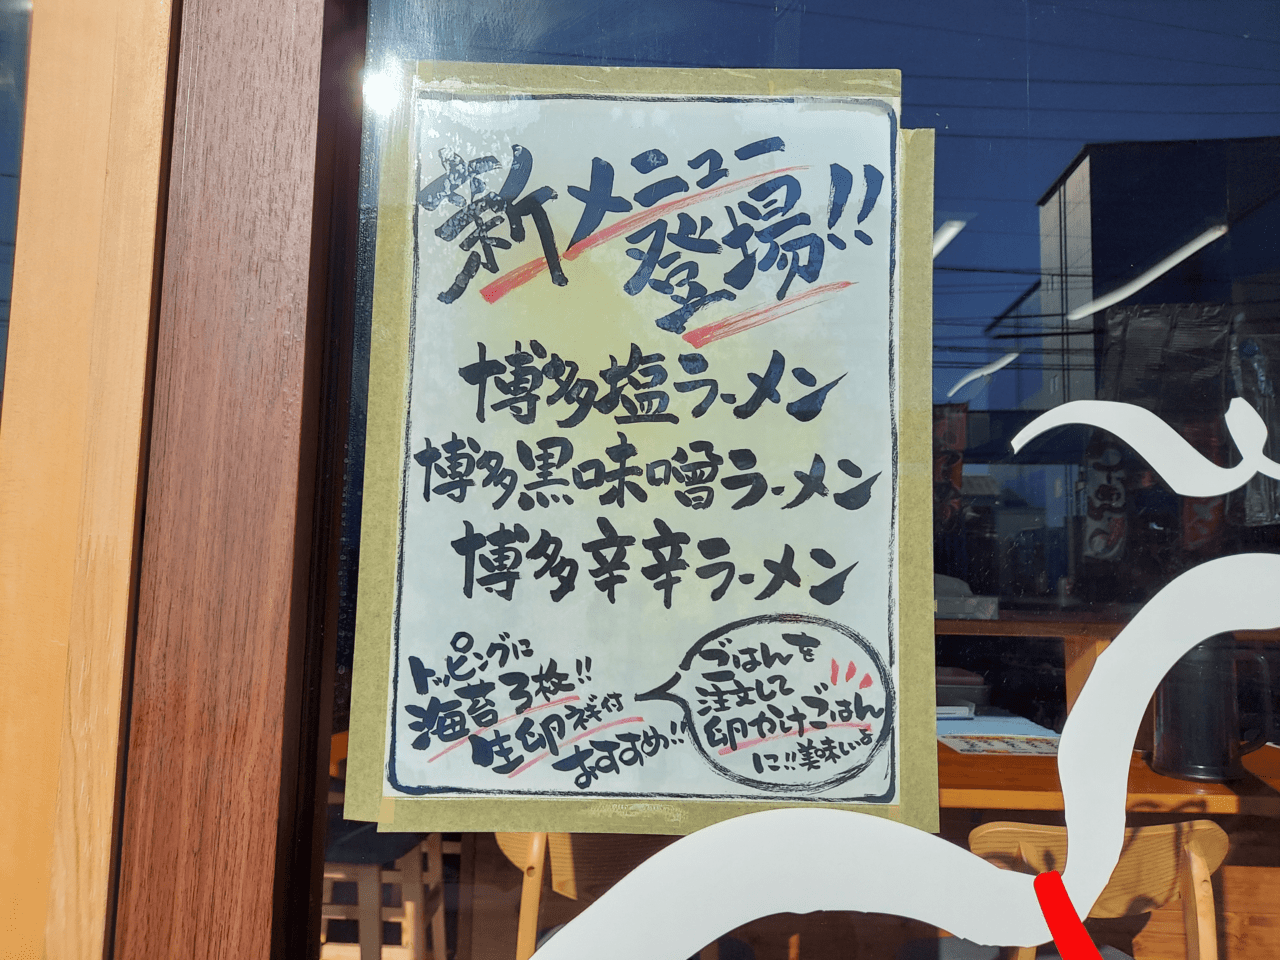 新メニュー
登場!!
博多塩ラーメン
博多黒味噌ラーメン
博多辛辛ラーメン
トッピングに
海苔3枚!!
生卵ネギ付
おすすめ!!
ごはんを
注文して
卵かけごはん
に!!美味しいよ